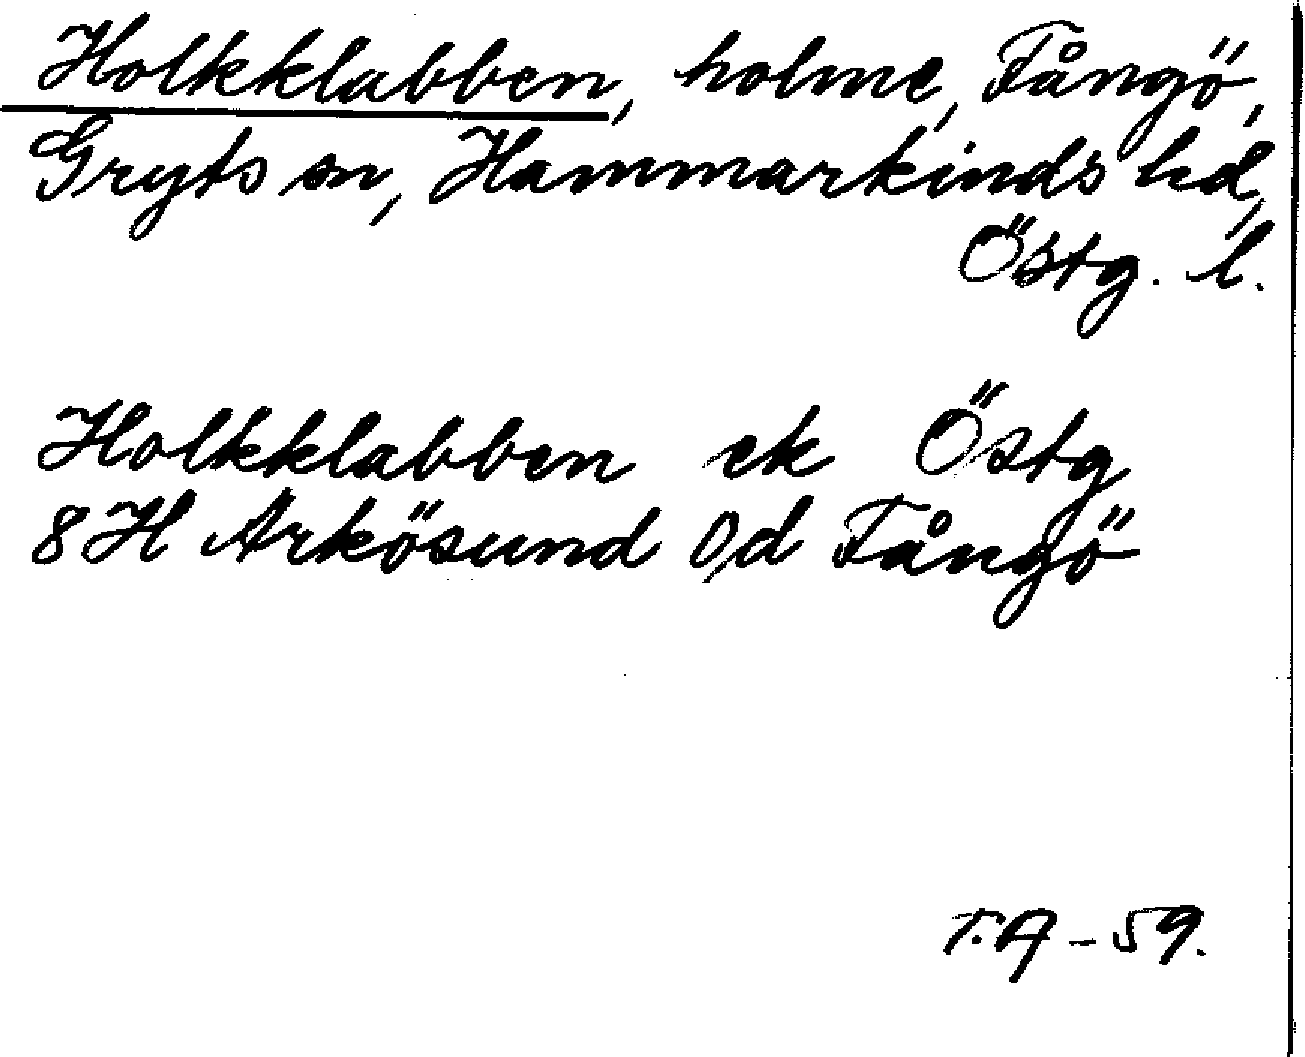 Holkklabben, holme, Fångö,
Gryts sn, Hammarkinds hd,
Östg. l.
Holkklabben ek Östg
8H Arkösund 0,d Fångö
T.A - 59.